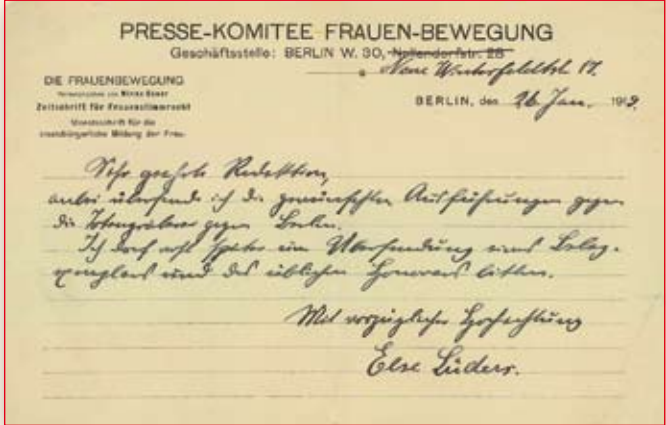 PRESSE-KOMITEE FRAUEN-BEWEGUNG
Geschäftsstelle: BERLIN W. 30, Nollendorfstr. 28
Neue Winterfeldtstr. 17.
DIE FRAUENBEWEGUNG
Herausgegeben von Minna Cauer
Zeitschrift für Frauenstimmrecht
Monatsschrift für die
staatsbürgerliche Bildung der Frau.
BERLIN, den 26. Jan. 1912.
Sehr geehrte Redaktion,
anbei übersende ich die gewünschten Ausführungen gegen
die Totengräberei gegen Berlin.
Ich darf wohl später um Übersendung eines Beleg-
exemplars und des üblichen Honorars bitten.
Mit vorzüglicher Hochachtung
Else Lüders.